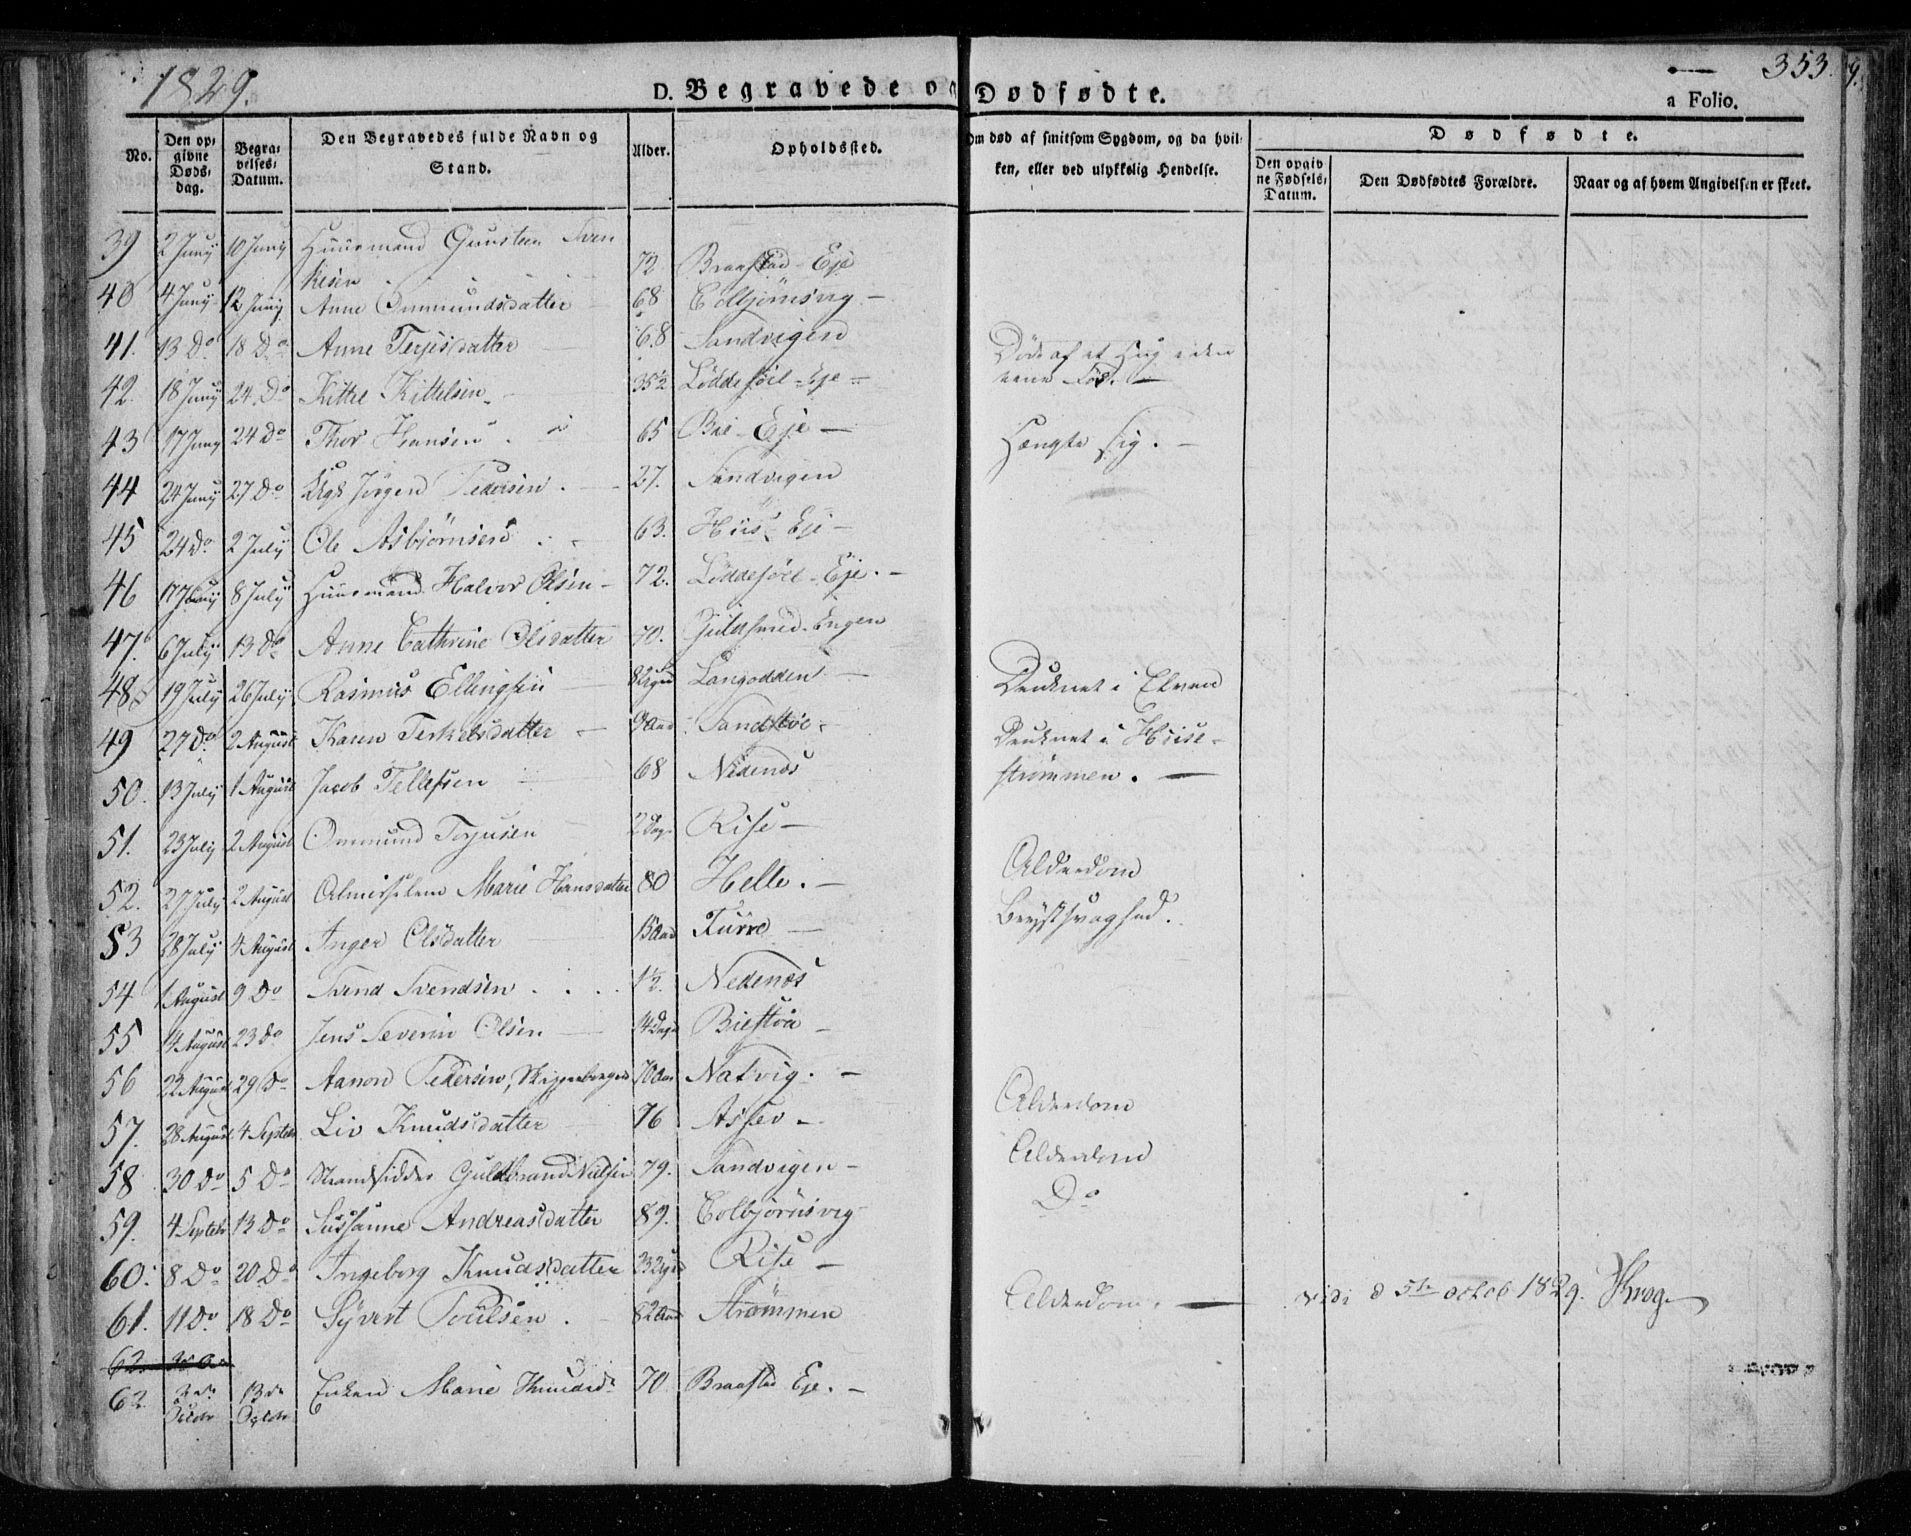 1829.
D. Begravede og Dødfødte.
353.
a Folio.
No.
Den op-
givne
Døds-
dag.
Begra-
velses-
Datum.
Den Begravedes fulde Navn og
Stand.
Alder.
Opholdssted.
Om død af smitsom Sygdom, og da hvil-
ken, eller ved ulykkelig Hendelse.
Dødfødte.
Den opgiv-
ne Fødsels-
Datum.
Den Dødfødtes Forældre.
Naar og af hvem Angivelsen er skeet.
39 2 Juny 10 Juny Huusmand Gunsten Sven
kesen 72 Braastad Eje
40 4 Juny 12 Juny Anne Ommundsdatter 68 Colbjørnsvig
41. 13 Do 18 Do Anne Terjesdatter 68 Sandvigen
42. 18 Juny 24 Do Kittel Kittelsen 35½ Løddesøel Eje Døde af et Hug i den
ene Fod.
43 17 Juny 24 Do Thor Hansen 65 Bie Eje Hængte sig.
44 24 Juny 27 Do Jørgen Pedersen 27. Sandvigen
45 24 Do 2 July Ole Asbjørnsen 63. Hiis Eje
46 17 Juny 8 July Huusmand Halvor Olsen 72. Løddesøel Eje.
47. 6 July 13 Do Anne Cathrine Olsdatter 70. Guldsmed Engen
48 19 July 26 July Rasmus Ellingsen Langodden Druknet i Elven
49 27 Do 2 August Karen Terkelsdatter 9 Aar Sandstøe Druknet i Hiise-
strømmen.
50. 13 July 1 August Jacob Tellefsen 68 Nedenæs
51. 23 July 2 August Ommund Torjusen 2 Dage Rise
52. 27 July 2 August Almisselem Marie Hansdatter 80 Helle. Alderdom
53 28 July 4 August Inger Olsdatter 15 Aar Furre Brystsvaghed.
54 1 August 9 Do Svend Svendsen 1½ Nedenæs
55 14 August 23 Do Jens Severin Olsen 14 Dage Biestøa
56 22 August 29 Do Aanon Pedersen, 70 Aar Natvig. Alderdom
57. 28 August 4 Septebr Liv Knudsdatter 76 Assev Alderdom
58 30 Do 5 Do Strandsidder Guldbrand Nielsen 79. Sandvigen Do
59. 4 Septebr 13 Do Sussanne Andreasdatter 89. Colbjørnsvig
60. 8 Do 20 Do Ingeborg Knudsdatter Rise
61. 11 Do 18 Do Syvert Poulsen 82 Aar Strømmen Alderdom.
vidi d 5te octob 1829. Krog
62
62 Marie 70 Braastad Eje.